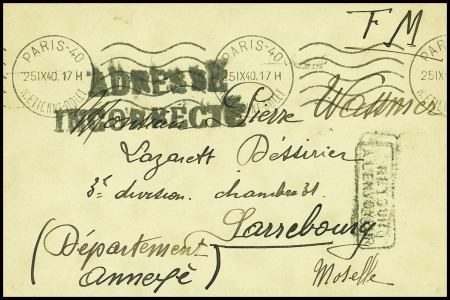 F M
PARIS-40 PARIS-40 PARIS-40
25 IX 40. 17 H 25 IX 40. 17 H 25 IX
R. ETIENNE-DOLET
ADRESSE
INCORRECTE
Monsieur Pierre Wattmer
Lazarett Dessirier
3e division. chambre 31.
Sarrebourg
(Département
annexé)
Moselle
RETOUR
A L'ENVOYEUR